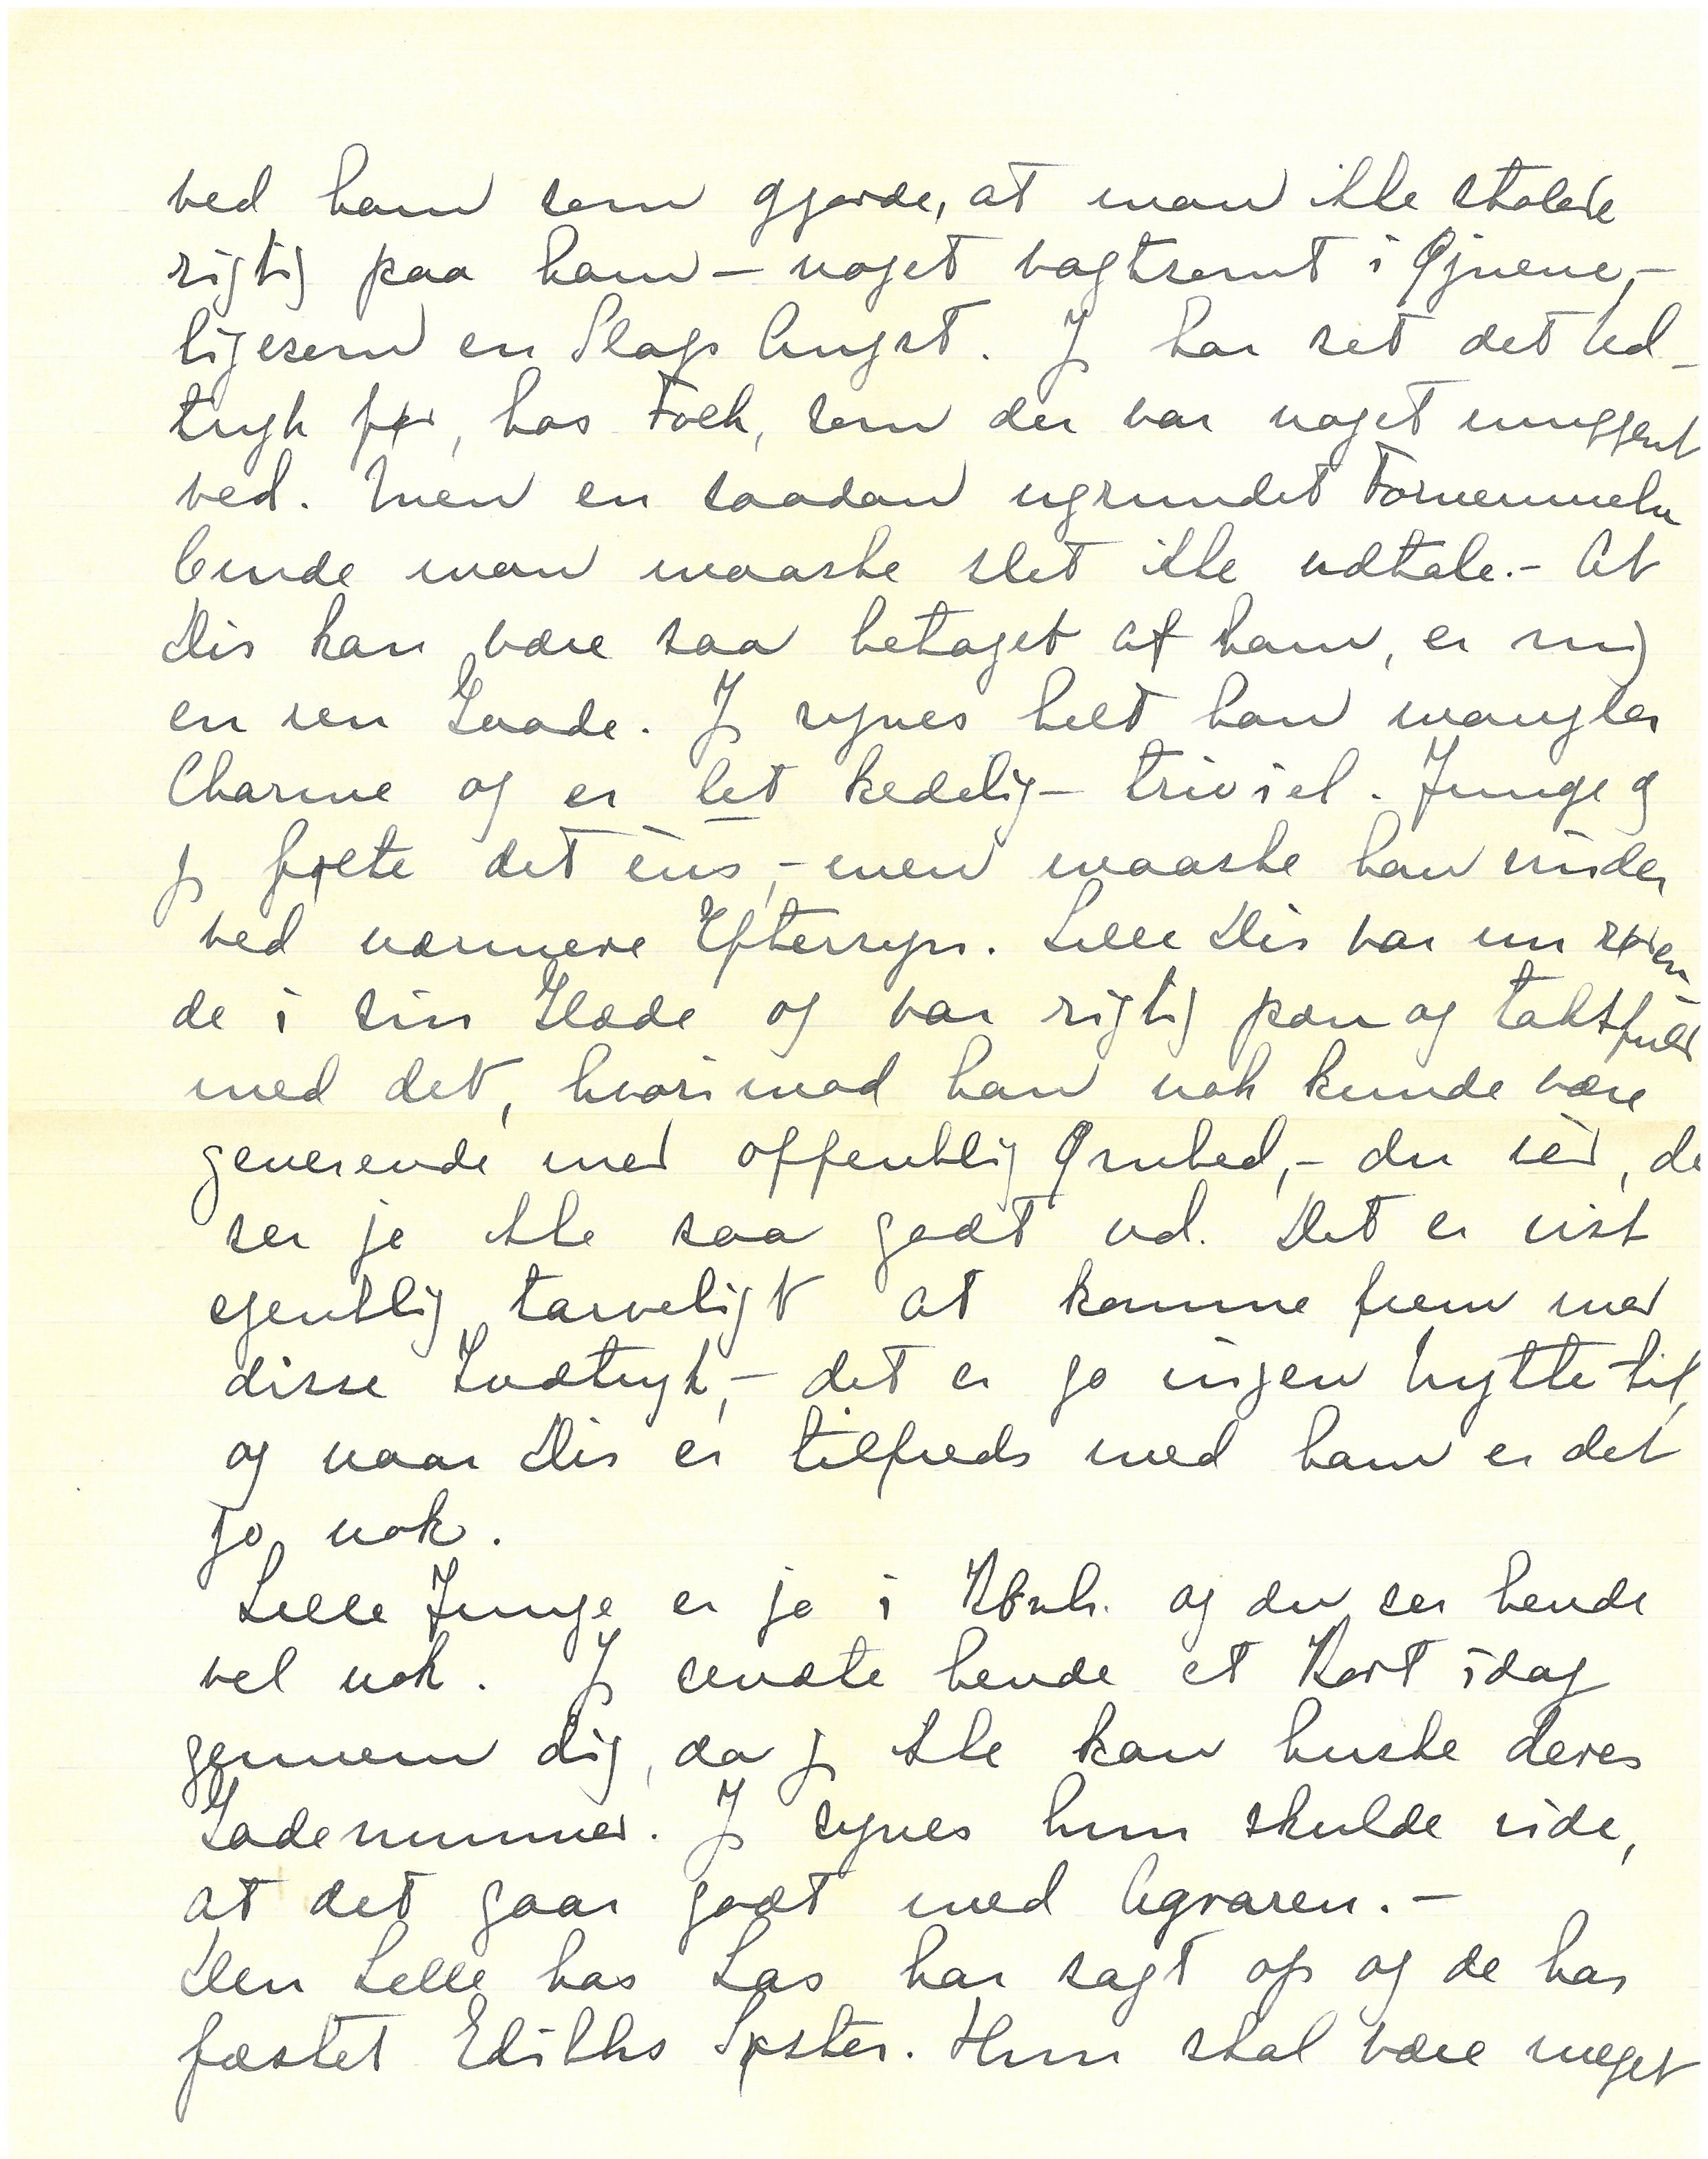 ved ham som gjorde, at man ikke stolede
rigtig paa ham – noget vagtsomt i Øjnene, –
ligesom en Slags Angst. Jg har set det Ud-
tryk før, hos Folk, som der var noget muggent
ved. Men en saadan ugrundet Fornemmelse
burde man maaske slet ikke udtale. – At
Dis kan være saa betaget af ham, er mig
en ren Gaade. Jg synes helt han mangler
Charme og er let kedelig – triviel. Junge og
jg følte det èns, – men maaske han vinder
ved nærmere Eftersyn. Lille Dis var nu røren
de i sin Glæde og var rigtig pæn og taktfuld
med det, hvorimod han nok kunde være
generende med offentlig Ømhed, – du vèd, det
ser jo ikke saa godt ud. Det er vist
egentlig tarveligt at komme frem med
disse Indtryk, – det er jo ingen Nytte til,
og naar Dis er tilfreds med ham er det
jo nok.
Lille Junge er jo i Kbnh. og du ser hende
vel nok. Jg sendte hende et Kort idag
gennem dig, da jg ikke kan huske deres
Gadenummer. Jg synes hun skulde vide,
at det gaar godt med Agraren. –
Den Lille hos Las har sagt op og de har
fæstet Ediths Søster. Hun skal være meget